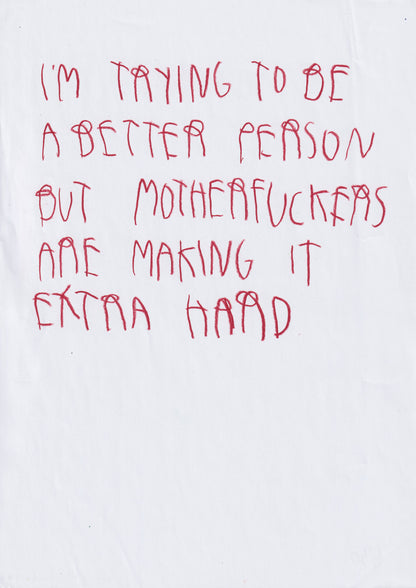 I'M TRYING TO BE
A BETTER PERSON
BUT MOTHERFUCKERS
ARE MAKING IT
EXTRA HARD